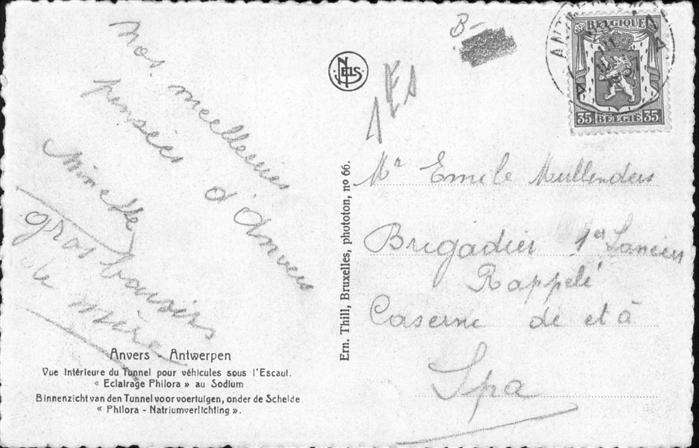 Nos meilleures
pensées d'Anvers
Minette
gros baisirs
de mère
Anvers - Antwerpen
Vue intérieure du Tunnel pour véhicules sous l'Escaut.
« Eclairage Philora » au Sodium
Binnenzicht van den Tunnel voor voertuigen, onder de Schelde
« Philora - Natriumverlichting ».
Ern. Thill, Bruxelles, phototon, no 66.
NELS
B-
BELGIQUE
35 BELGIË 35
Mr Emile Mullenders
Brigadier 1er Lanciers
Rappelé
Caserne de et à
Spa